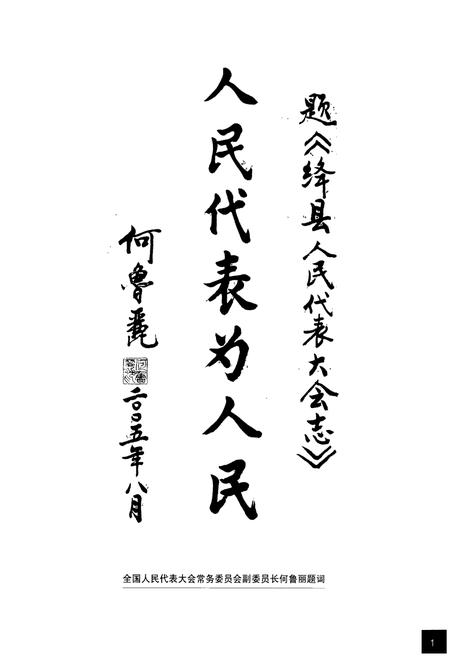 题《绛县人民代表大会志》
人民代表为人民
何鲁丽
二〇〇五年八月
全国人民代表大会常务委员会副委员长何鲁丽题词
1